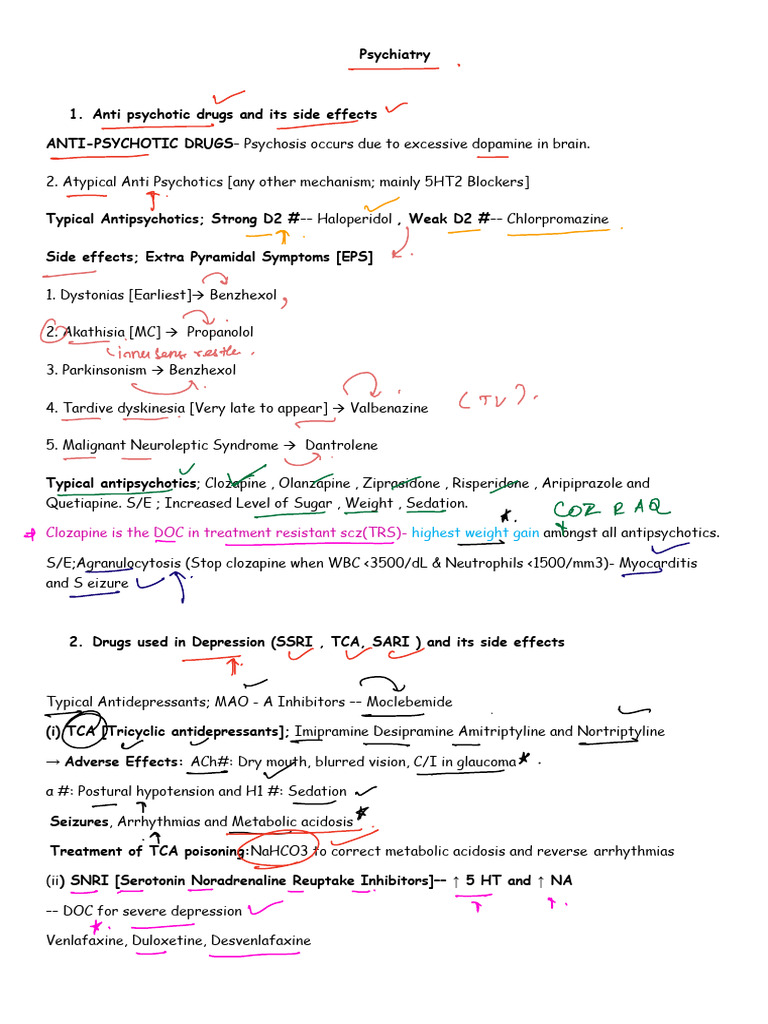 Psychiatry
1. Anti psychotic drugs and its side effects
ANTI-PSYCHOTIC DRUGS- Psychosis occurs due to excessive dopamine in brain.
2. Atypical Anti Psychotics [any other mechanism; mainly 5HT2 Blockers]
Typical Antipsychotics; Strong D2 #-- Haloperidol , Weak D2 #-- Chlorpromazine
Side effects; Extra Pyramidal Symptoms [EPS]
1. Dystonias [Earliest]→ Benzhexol
2. Akathisia [MC] → Propanolol
inner sense restle
3. Parkinsonism → Benzhexol
4. Tardive dyskinesia [Very late to appear] → Valbenazine (TV).
5. Malignant Neuroleptic Syndrome → Dantrolene
Typical antipsychotics; Clozapine , Olanzapine , Ziprasidone , Risperidone , Aripiprazole and
Quetiapine. S/E ; Increased Level of Sugar , Weight , Sedation.
COZ R AQ
Clozapine is the DOC in treatment resistant scz(TRS)- highest weight gain amongst all antipsychotics.
S/E;Agranulocytosis (Stop clozapine when WBC <3500/dL & Neutrophils <1500/mm3)- Myocarditis
and S eizure
2. Drugs used in Depression (SSRI , TCA, SARI ) and its side effects
Typical Antidepressants; MAO - A Inhibitors -- Moclebemide
(i) TCA [Tricyclic antidepressants]; Imipramine Desipramine Amitriptyline and Nortriptyline
→ Adverse Effects: ACh#: Dry mouth, blurred vision, C/I in glaucoma
a #: Postural hypotension and H1 #: Sedation
Seizures, Arrhythmias and Metabolic acidosis
Treatment of TCA poisoning:NaHCO3 to correct metabolic acidosis and reverse arrhythmias
(ii) SNRI [Serotonin Noradrenaline Reuptake Inhibitors]-- ↑ 5 HT and ↑ NA
-- DOC for severe depression
Venlafaxine, Duloxetine, Desvenlafaxine